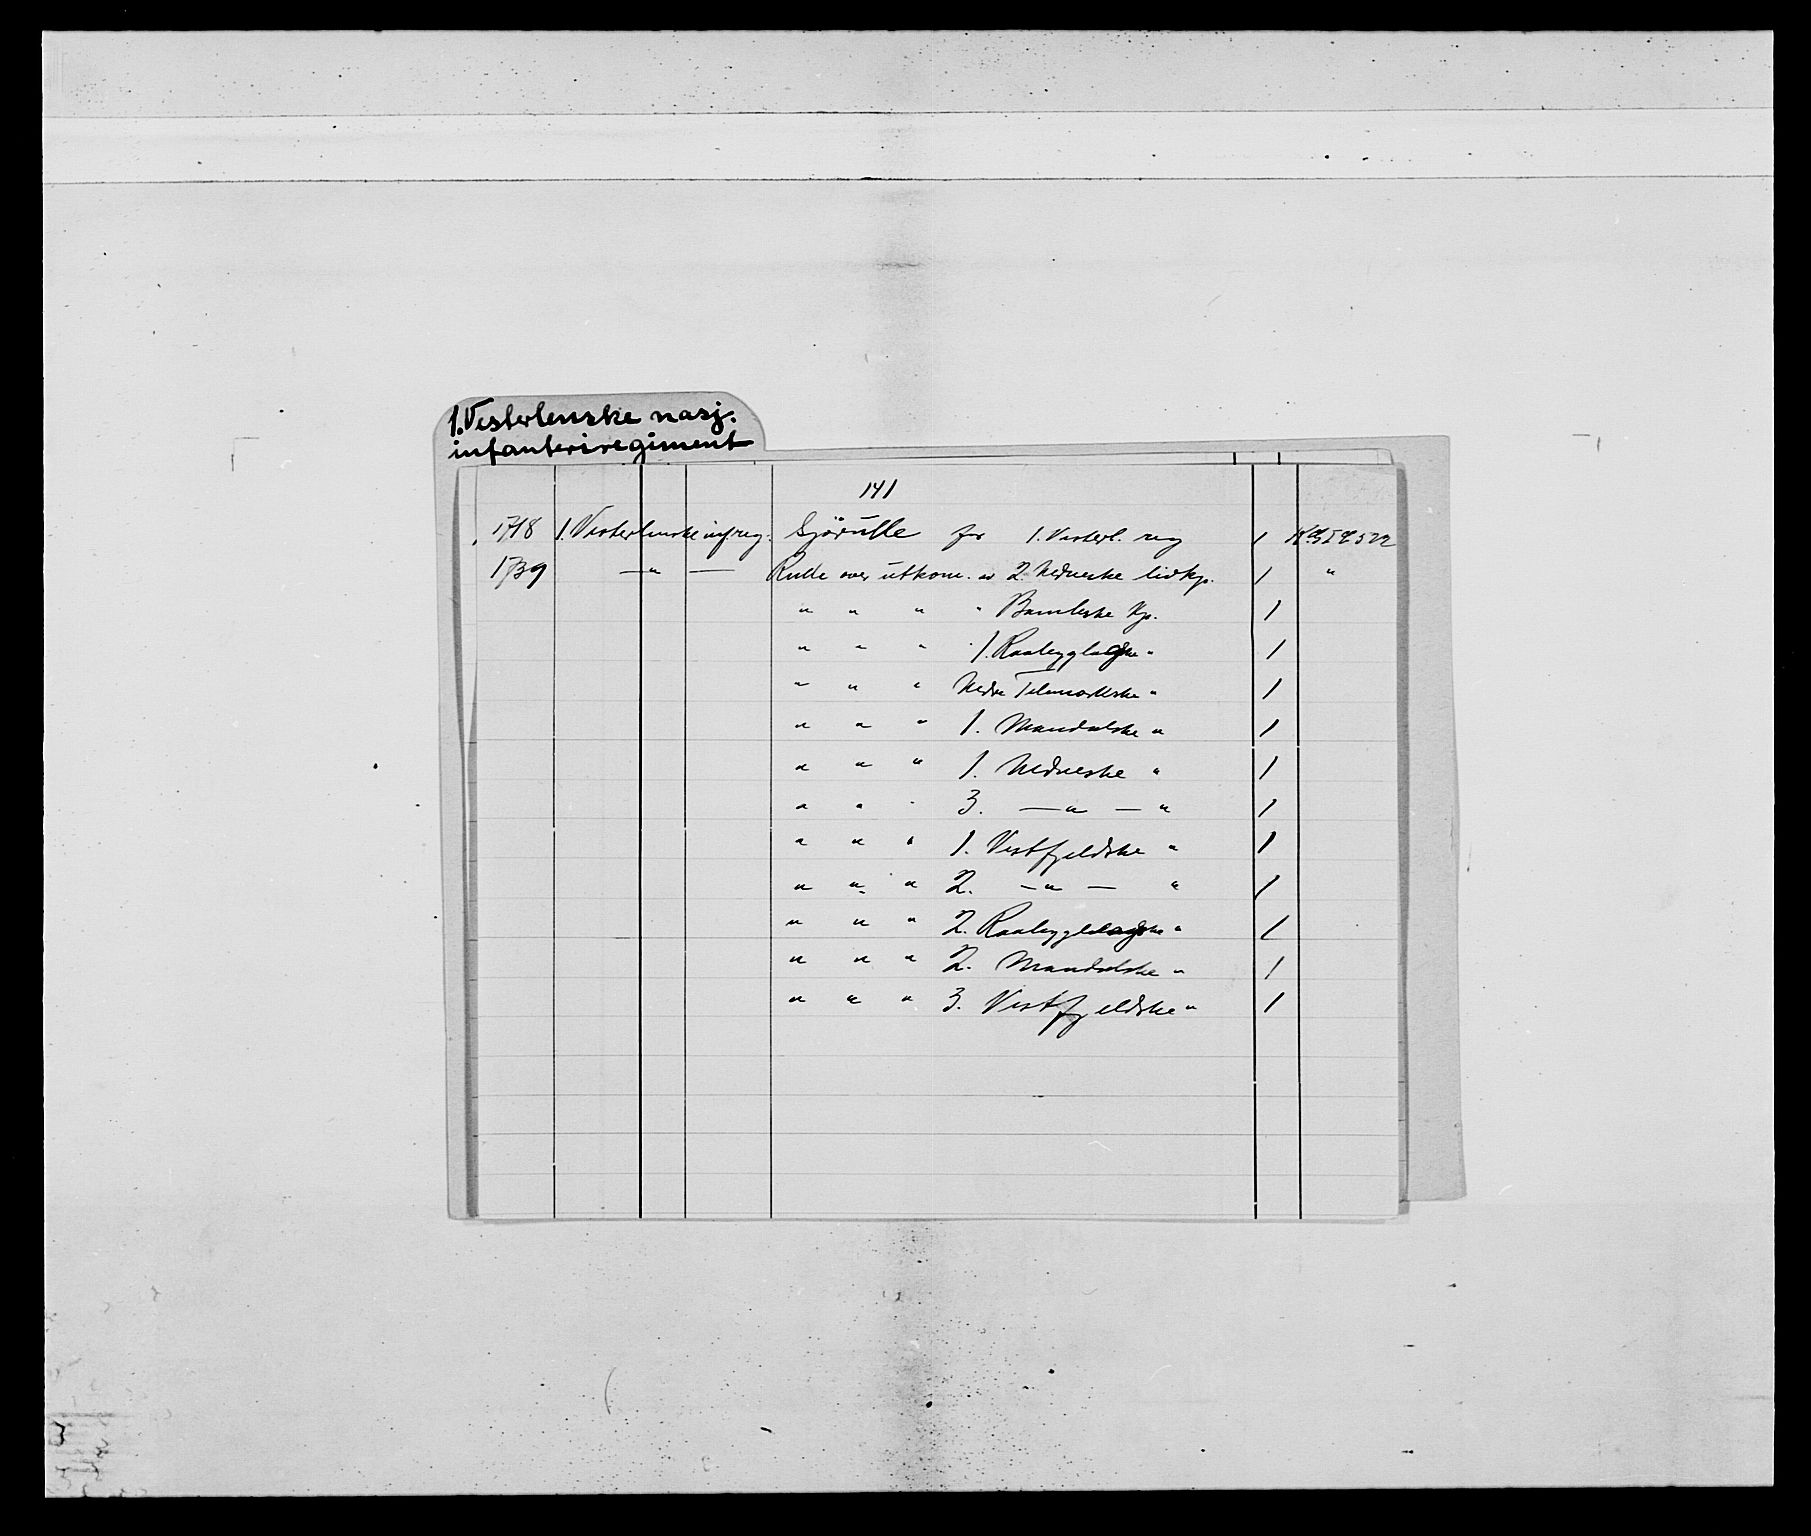 1. Vesterlenske nasj.
infanteriregiment
141
1718 1. Vesterlenske inf reg. Sjörulle for 1. Vesterl. reg 1
1739 — " — Rulle over utkom. av 2. Nedneske livkp. 1 "
" " " " Bambleske Kp. 1
" " " 1. Raabyggelagske " 1
" " " Nedre Telemarkske " 1
" " " 1. Mandalske " 1
" " " 1. Nedneske " 1
" " " 3. — " — " 1
" " " 1. Vestfjeldske " 1
" " " 2. — " — " 1
" " " 2. Raabyggelagske " 1
" " " 2. Mandalske " 1
" " " 3. Vestfjeldske " 1